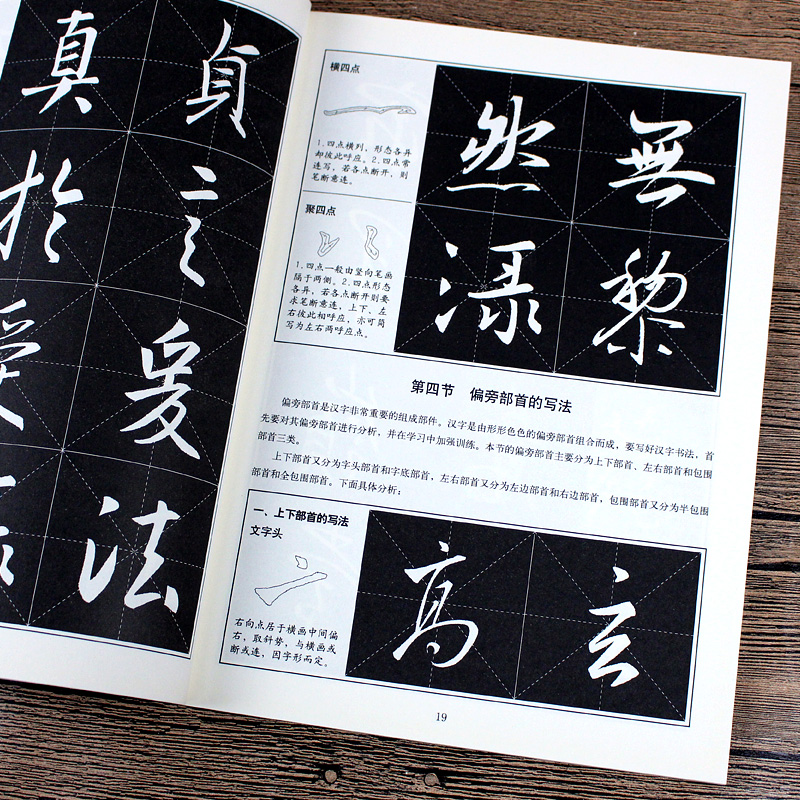 真 貞
於 之
愛 爰
法
横四点
1.四点横列，形态各异
却彼此呼应。2.四点常
连写，若各点断开，则
笔断意连。
然 無
聚四点
1.四点一般由竖向笔画
隔于两侧。2.四点形态
各异，若各点断开则要
求笔断意连，上下、左
右彼此相呼应，亦可简
写为左右两呼应点。
渌 黎
第四节 偏旁部首的写法
偏旁部首是汉字非常重要的组成部件。汉字是由形形色色的偏旁部首组合而成，要写好汉字书法，首
先要对其偏旁部首进行分析，并在学习中加强训练。本节的偏旁部首主要分为上下部首、左右部首和包围
部首三类。
上下部首又分为字头部首和字底部首，左右部首又分为左边部首和右边部首，包围部首又分为半包围
部首和全包围部首。下面具体分析：
一、上下部首的写法
文字头
右向点居于横画中间偏
右，取斜势，与横画或
断或连，因字形而定。
高 玄
19